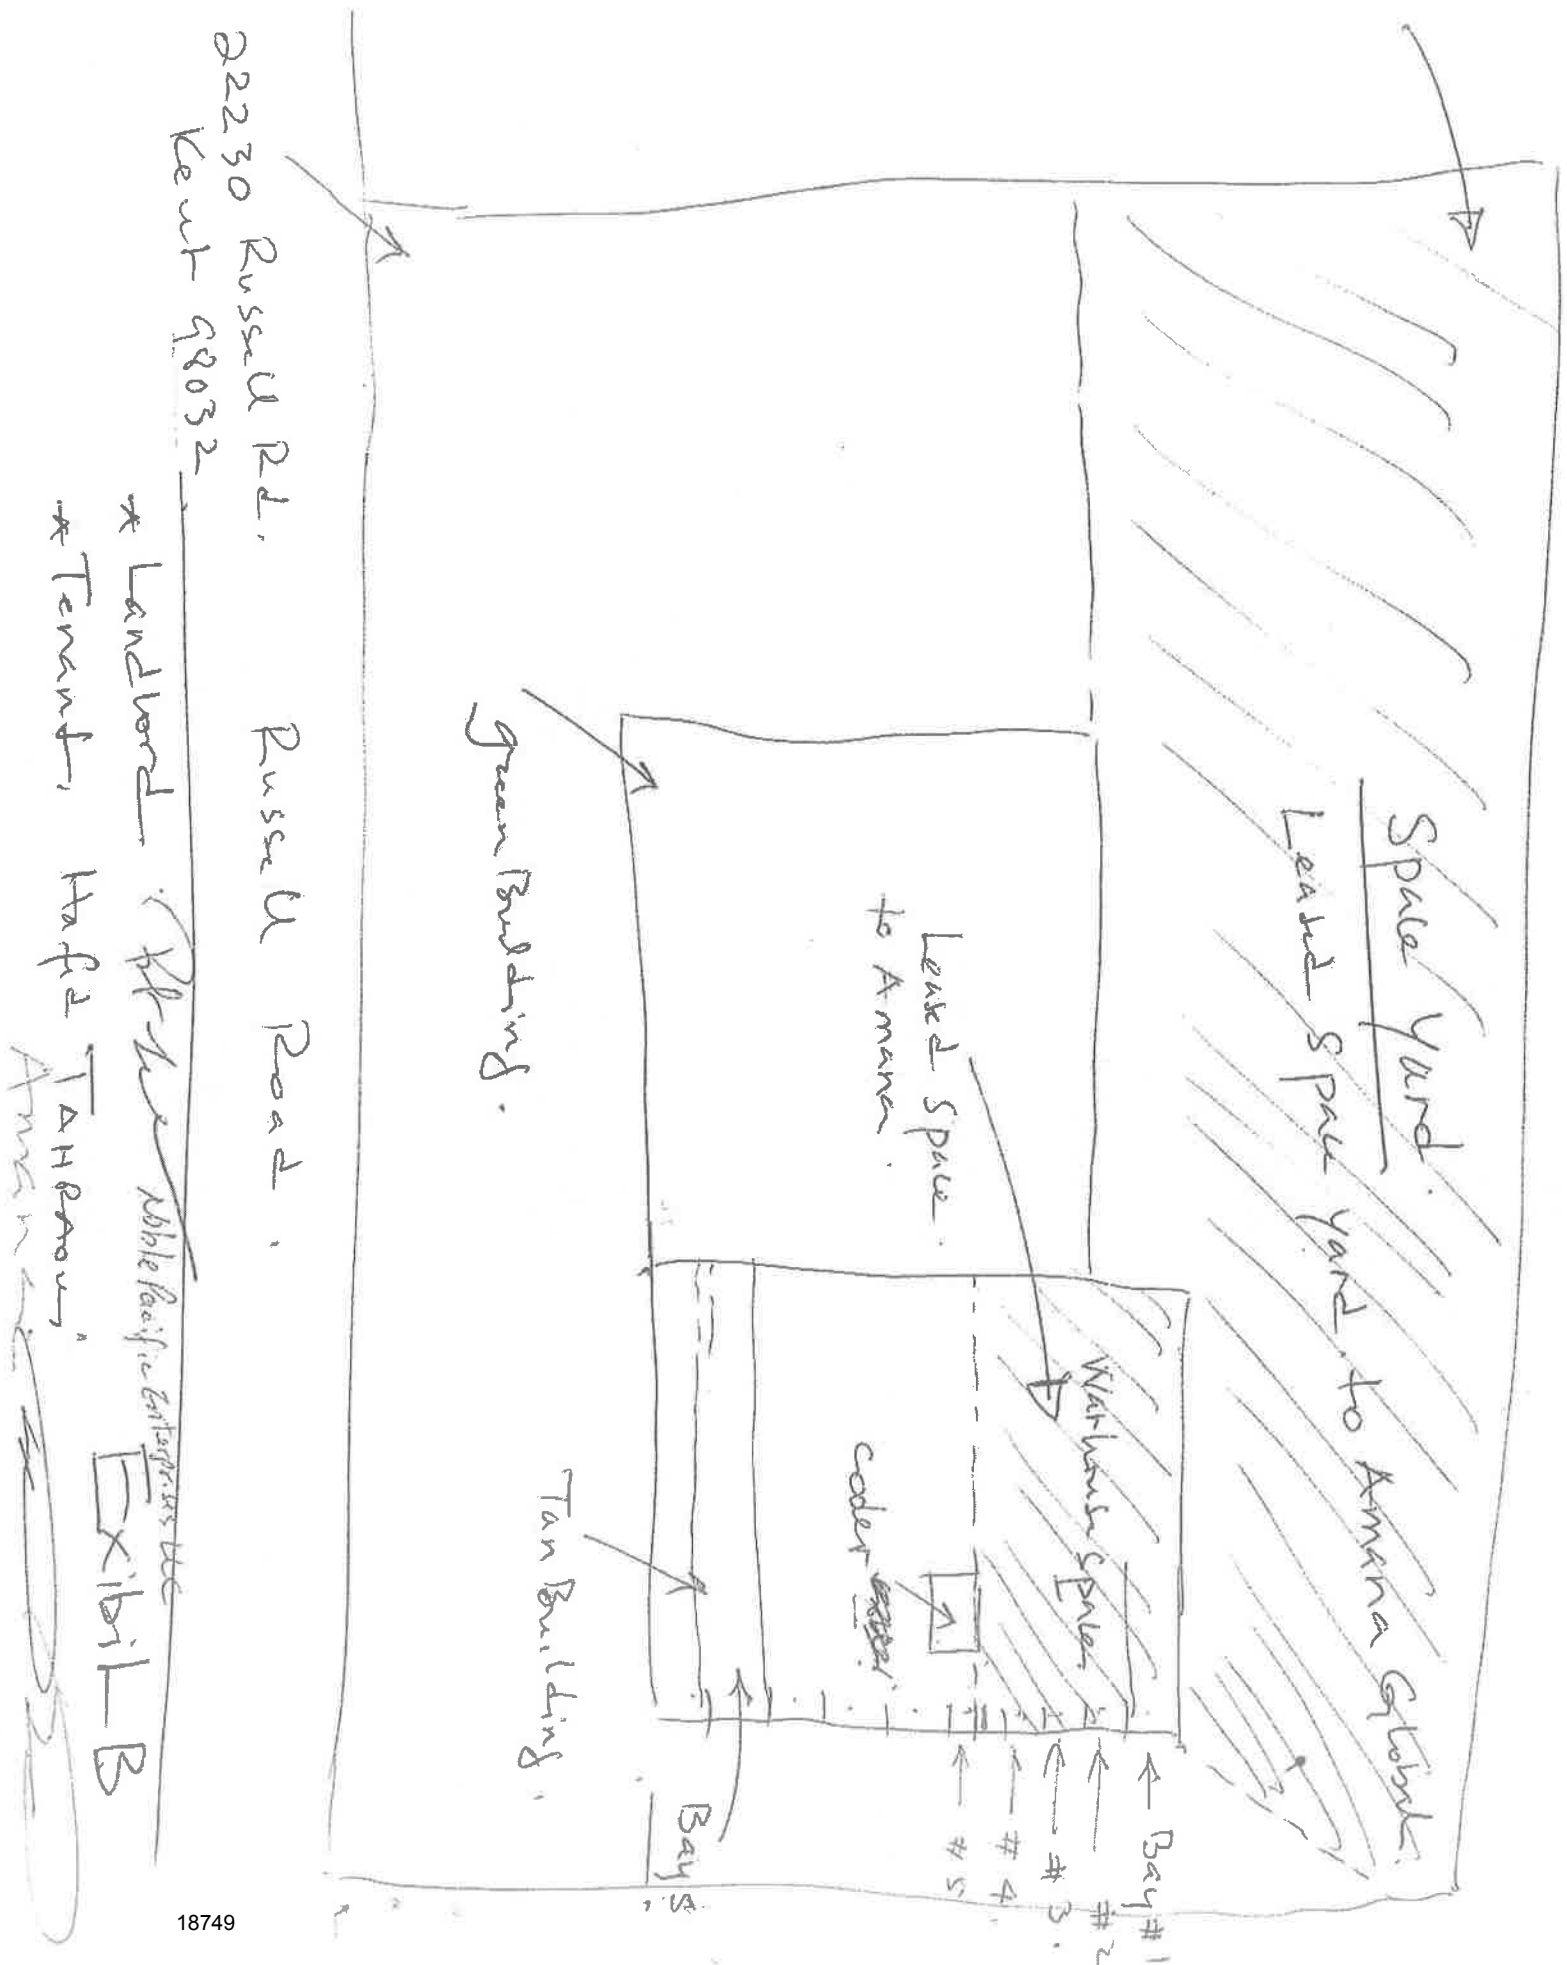 Space Yard.
Leased Space Yard. to Amana Global.
Leased Space.
to Amana.
Warhouse Space
Bay #1
#2
#3.
#4
#5
Coder
Bay
Green Building.
Tan Building.
Russell Road.
22230 Russell Rd.
Kent 98032
* Landlord Noble Pacific Enterprises LLC
* Tenant, Hafid TAHRAOUI,
Amana
ExibiL B
18749